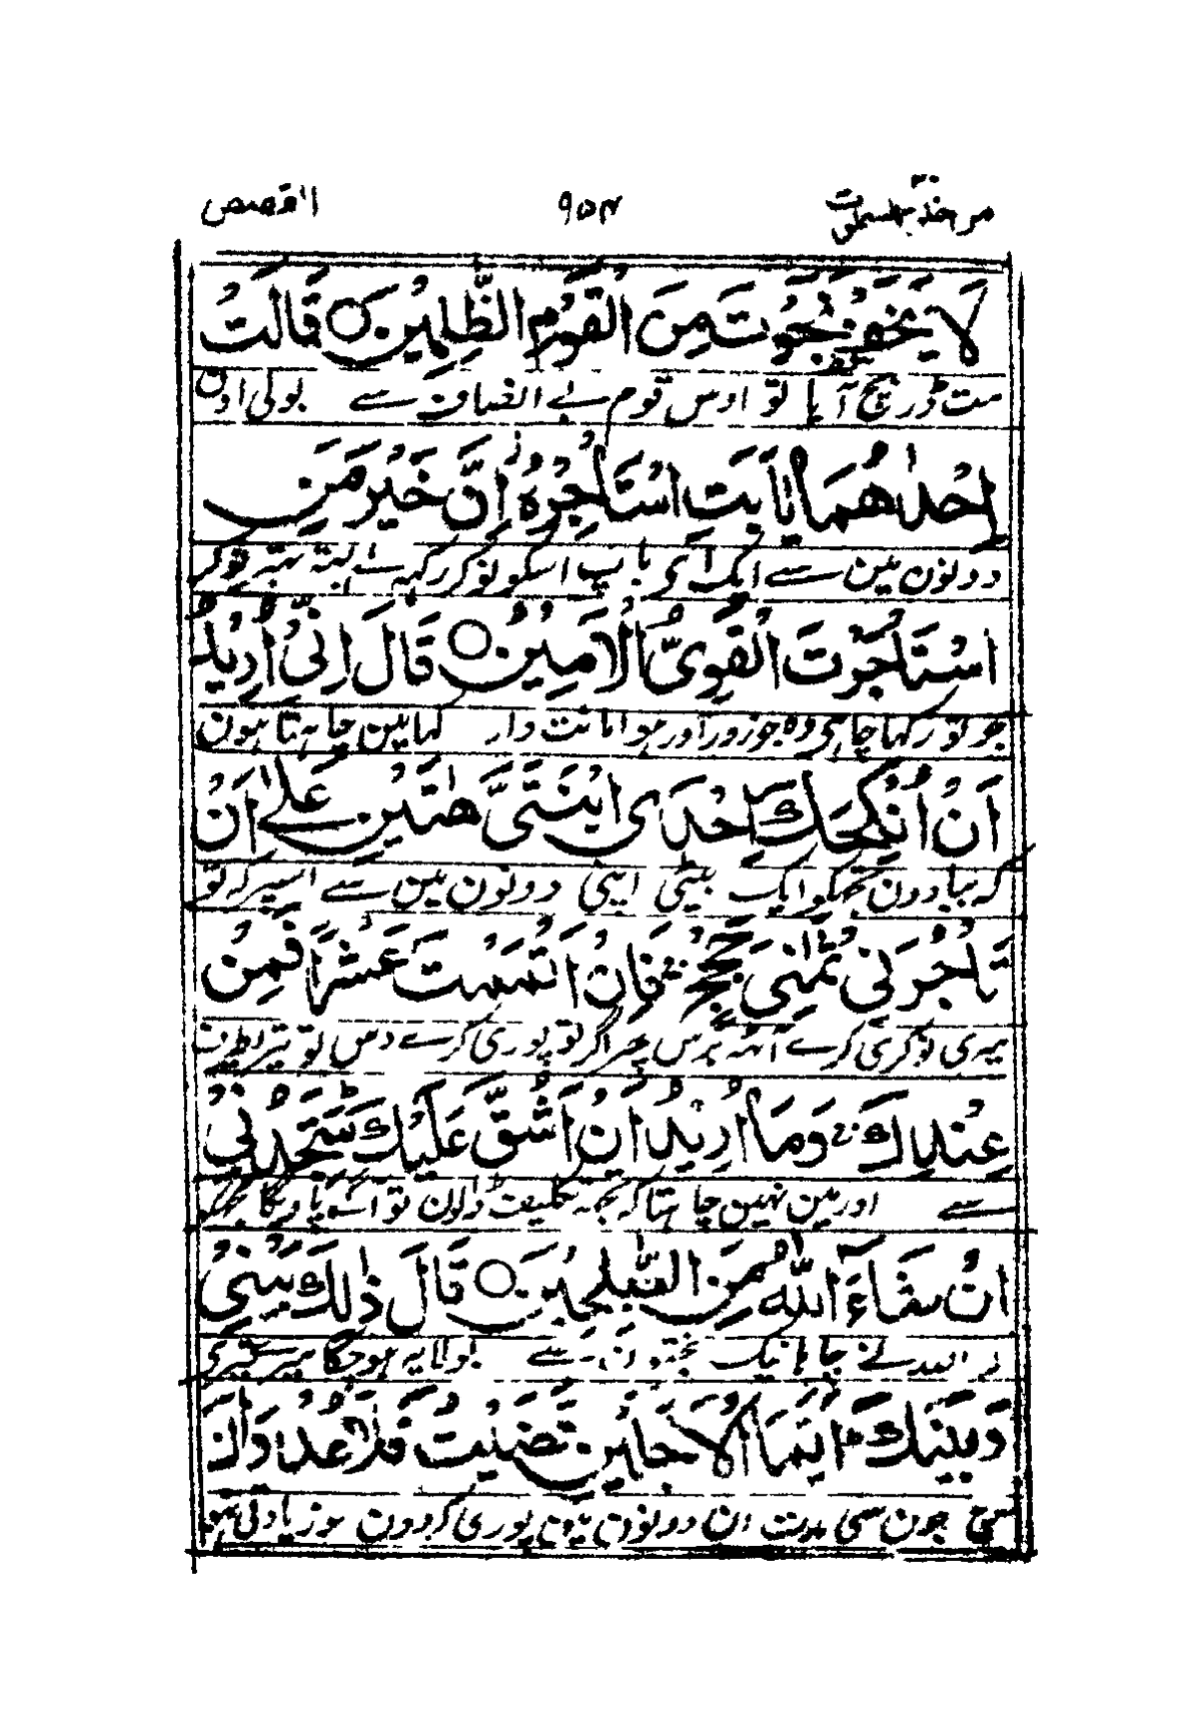 القصص ۹۵۴
لَا تَخَفْ نَجَوْتَ مِنَ الْقَوْمِ الظّٰلِمِيْنَ ○ قَالَتْ
مت ڈر بچ آیا تو اوس قوم بے انصاف سے بولی اون
اِحْدٰىهُمَا يٰاَبَتِ اسْتَأْجِرْهُ اِنَّ خَيْرَ مَنِ
دونون مین سے ایک ای باپ اسکو نوکر رکہہ لے البتہ بہتر نوکر
اسْتَأْجَرْتَ الْقَوِيُّ الْاَمِيْنُ ○ قَالَ اِنِّيْ اُرِيْدُ
جو تو رکہا چاہی وہ جو زور آور ہو امانت دار کہا مین چاہتا ہون
اَنْ اُنْكِحَكَ اِحْدَى ابْنَتَيَّ هٰتَيْنِ عَلٰى اَنْ
کہ بیاہ دون تجھکو ایک بیٹی اپنی دونون مین سے اسپر کہ تو
تَأْجُرَنِيْ ثَمٰنِيَ حِجَجٍ فَاِنْ اَتْمَمْتَ عَشْرًا فَمِنْ
میری نوکری کرے آٹھ برس پھر اگر تو پوری کرے دس تو تیری طرف
عِنْدِكَ وَمَا اُرِيْدُ اَنْ اَشُقَّ عَلَيْكَ سَتَجِدُنِيْ
سے اور مین نہین چاہتا کہ تجھ پر تکلیف ڈالون تو آگے پاویگا مجھکو
اِنْ شَاءَ اللّٰهُ مِنَ الصّٰلِحِيْنَ ○ قَالَ ذٰلِكَ بَيْنِيْ
اللہ نے چاہا نیک بختون سے بولا یہ ہو چکا میرے تیری
وَبَيْنَكَ اَيَّمَا الْاَجَلَيْنِ قَضَيْتُ فَلَا عُدْوَانَ
جون سی مدت ان دونون مین پوری کردون سو زیادتی نہو